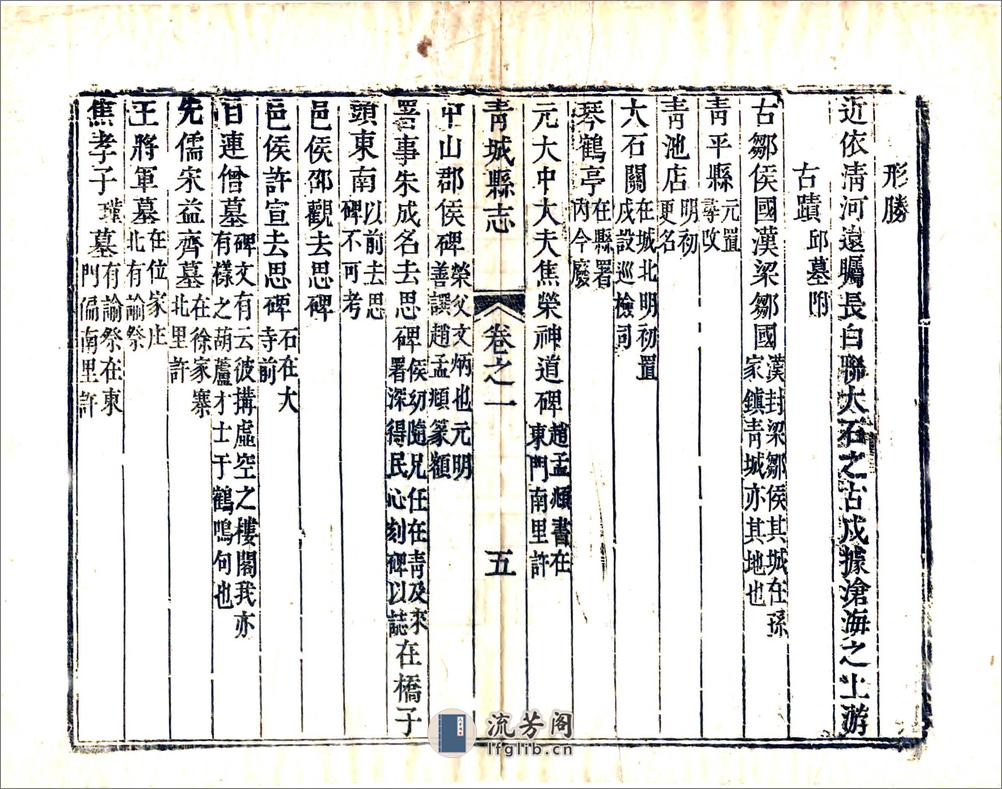 形勝
近依清河遠矚長白聯大石之古戍據滄海之上游
古蹟 邱墓附
古鄒侯國漢梁鄒國 漢封梁鄒侯其城在孫家鎮青城亦其地也
青平縣 元置尋改
青池店 明初更名
大石關 在城北明初置戍設巡檢司
琴鶴亭 在縣署內今廢
元大中大夫焦榮神道碑 趙孟頫書在東門南里許
青城縣志 卷之一 五
中山郡侯碑 榮父文炳也元明善譔趙孟頫篆額
署事朱成名去思碑 侯幼隨兄任在青及來署深得民心刻碑以誌 在橋子
頭東南 以前去思碑不可考
邑侯邵觀去思碑
邑侯許宣去思碑 石在大寺前
目連僧墓 碑文有云彼搆虛空之樓閣我亦有樣之葫蘆才士于鶴鳴句也
先儒宋益齊墓 在徐家寨北里許
王將軍墓 在位家庄北有諭祭
焦孝子 墓 有諭祭在東門偏南里許
流芳阁
lfglib.cn